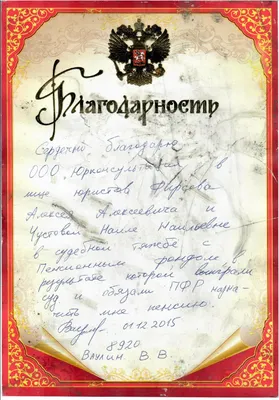 Благодарность
Сердечно благодарю
ООО "Юрконсультация" в
лице юристов Фирсова
Алексея Алексеевича и
Чустовой Наиле Наильевне
в судебной тяжбе с
Пенсионным фондом в
результате которой выиграли
суд и обязали ПФР назна-
чить мне пенсию.
01.12.2015
8920
Ваулин В. В.